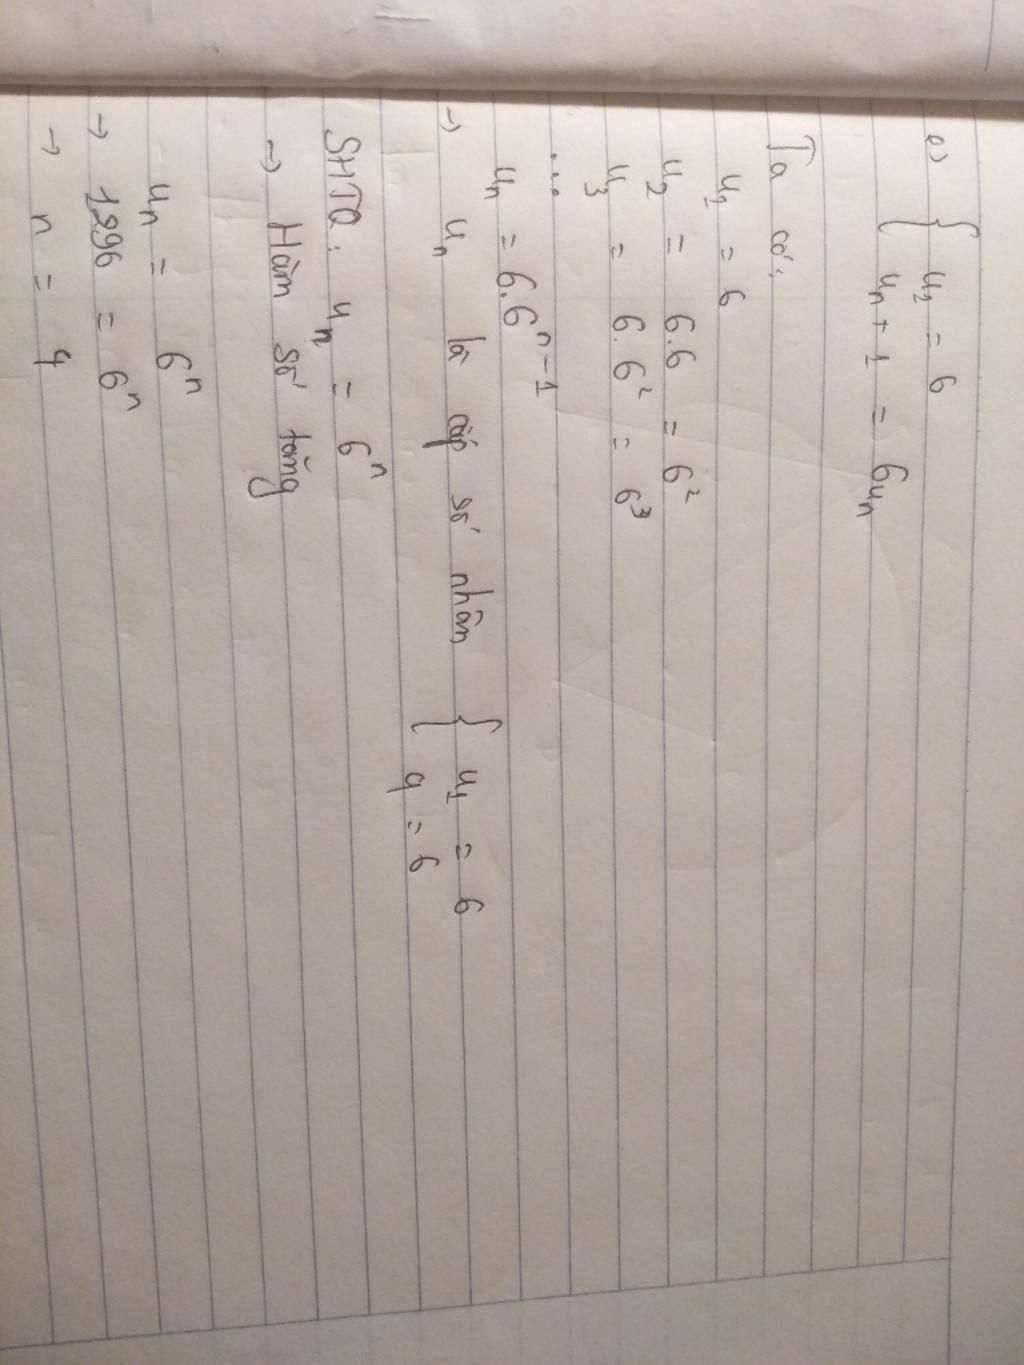 e) { u1 = 6
un+1 = 6un
Ta có:
u1 = 6
u2 = 6.6 = 6²
u3 = 6.6² = 6³
...
un = 6.6^n-1
→ un là cấp số nhân { u1 = 6
q = 6
SHTQ: un = 6^n
→ Hàm số tăng
un = 6^n
→ 1296 = 6^n
→ n = 4